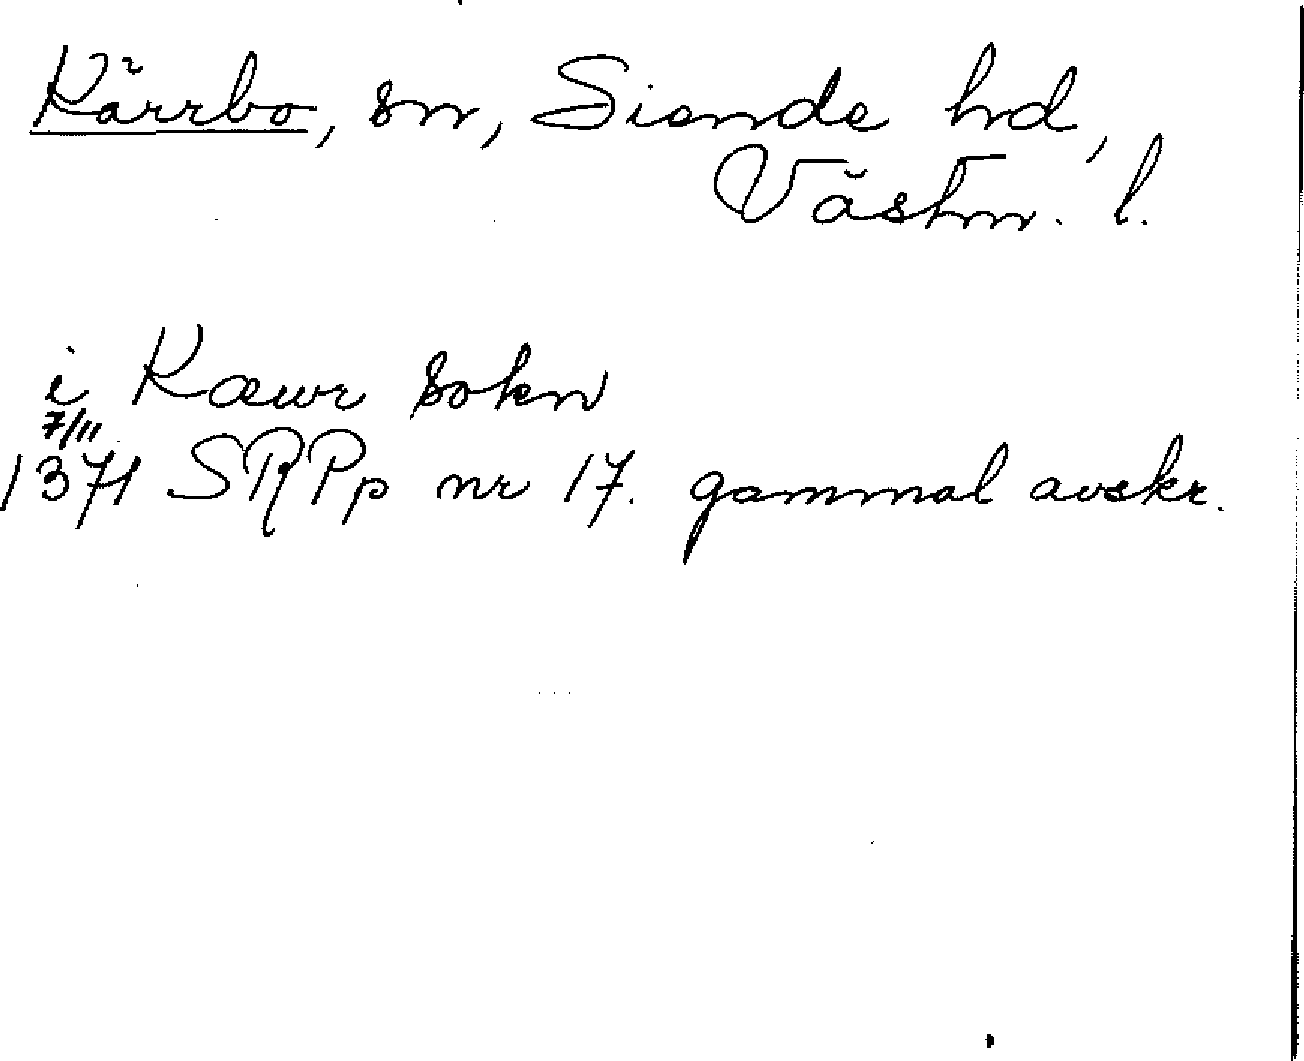 Kärrbo, sn, Siende hd,
Västm. l.
i Kæwr sokn
7/11
1371 SRPp nr 17. gammal avskr.